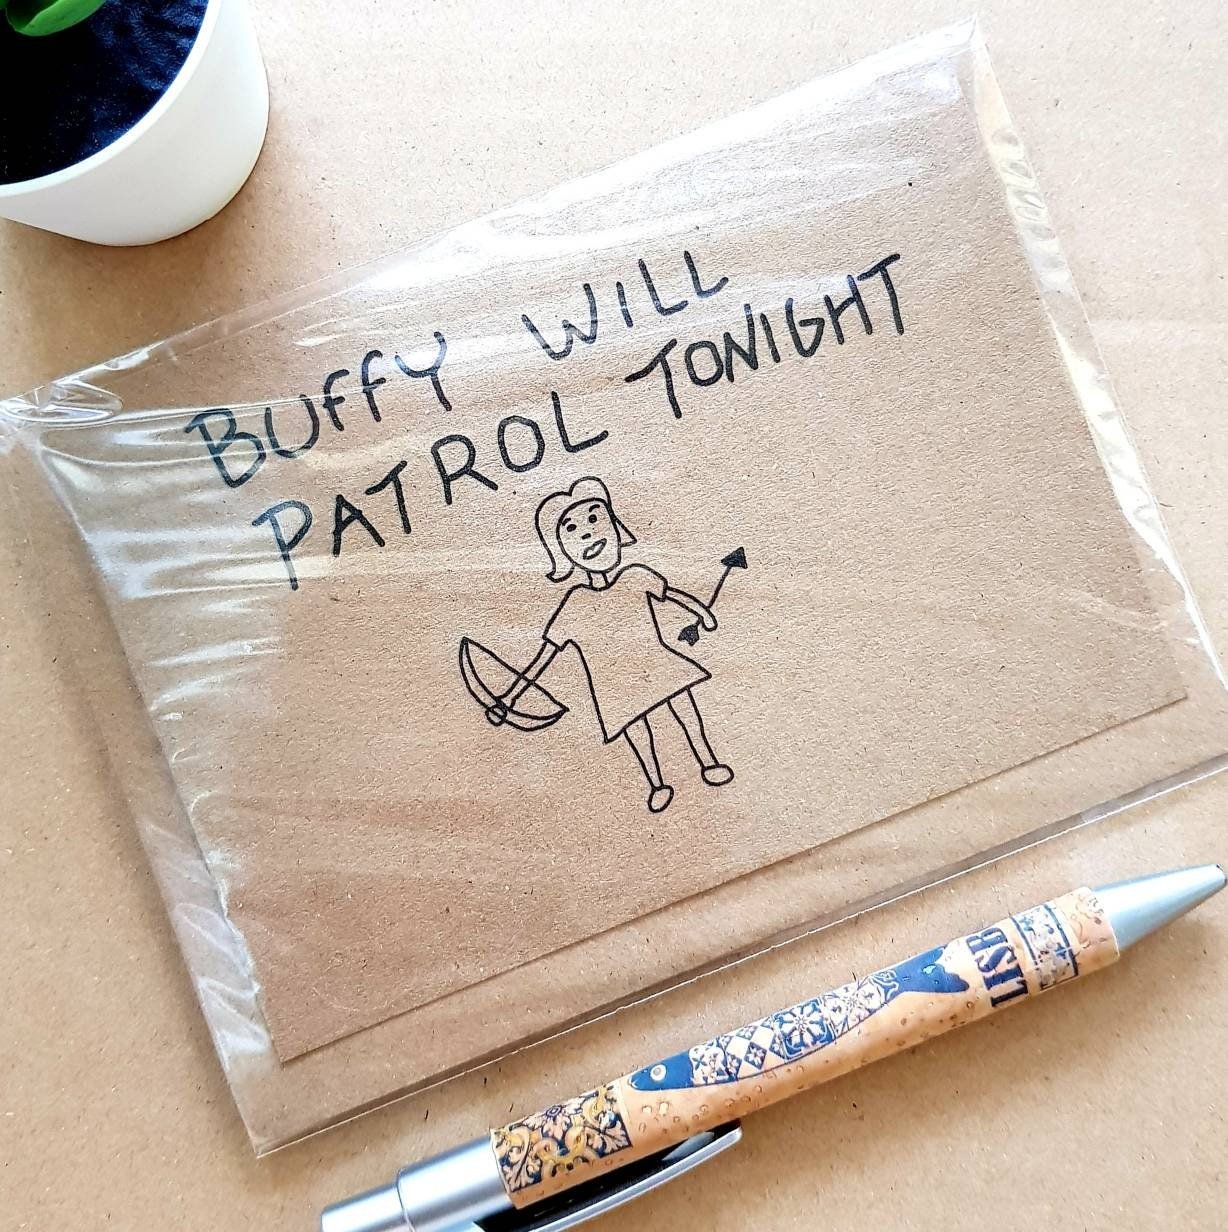 BUffY WILL
PATROL TONIGHT
LISB